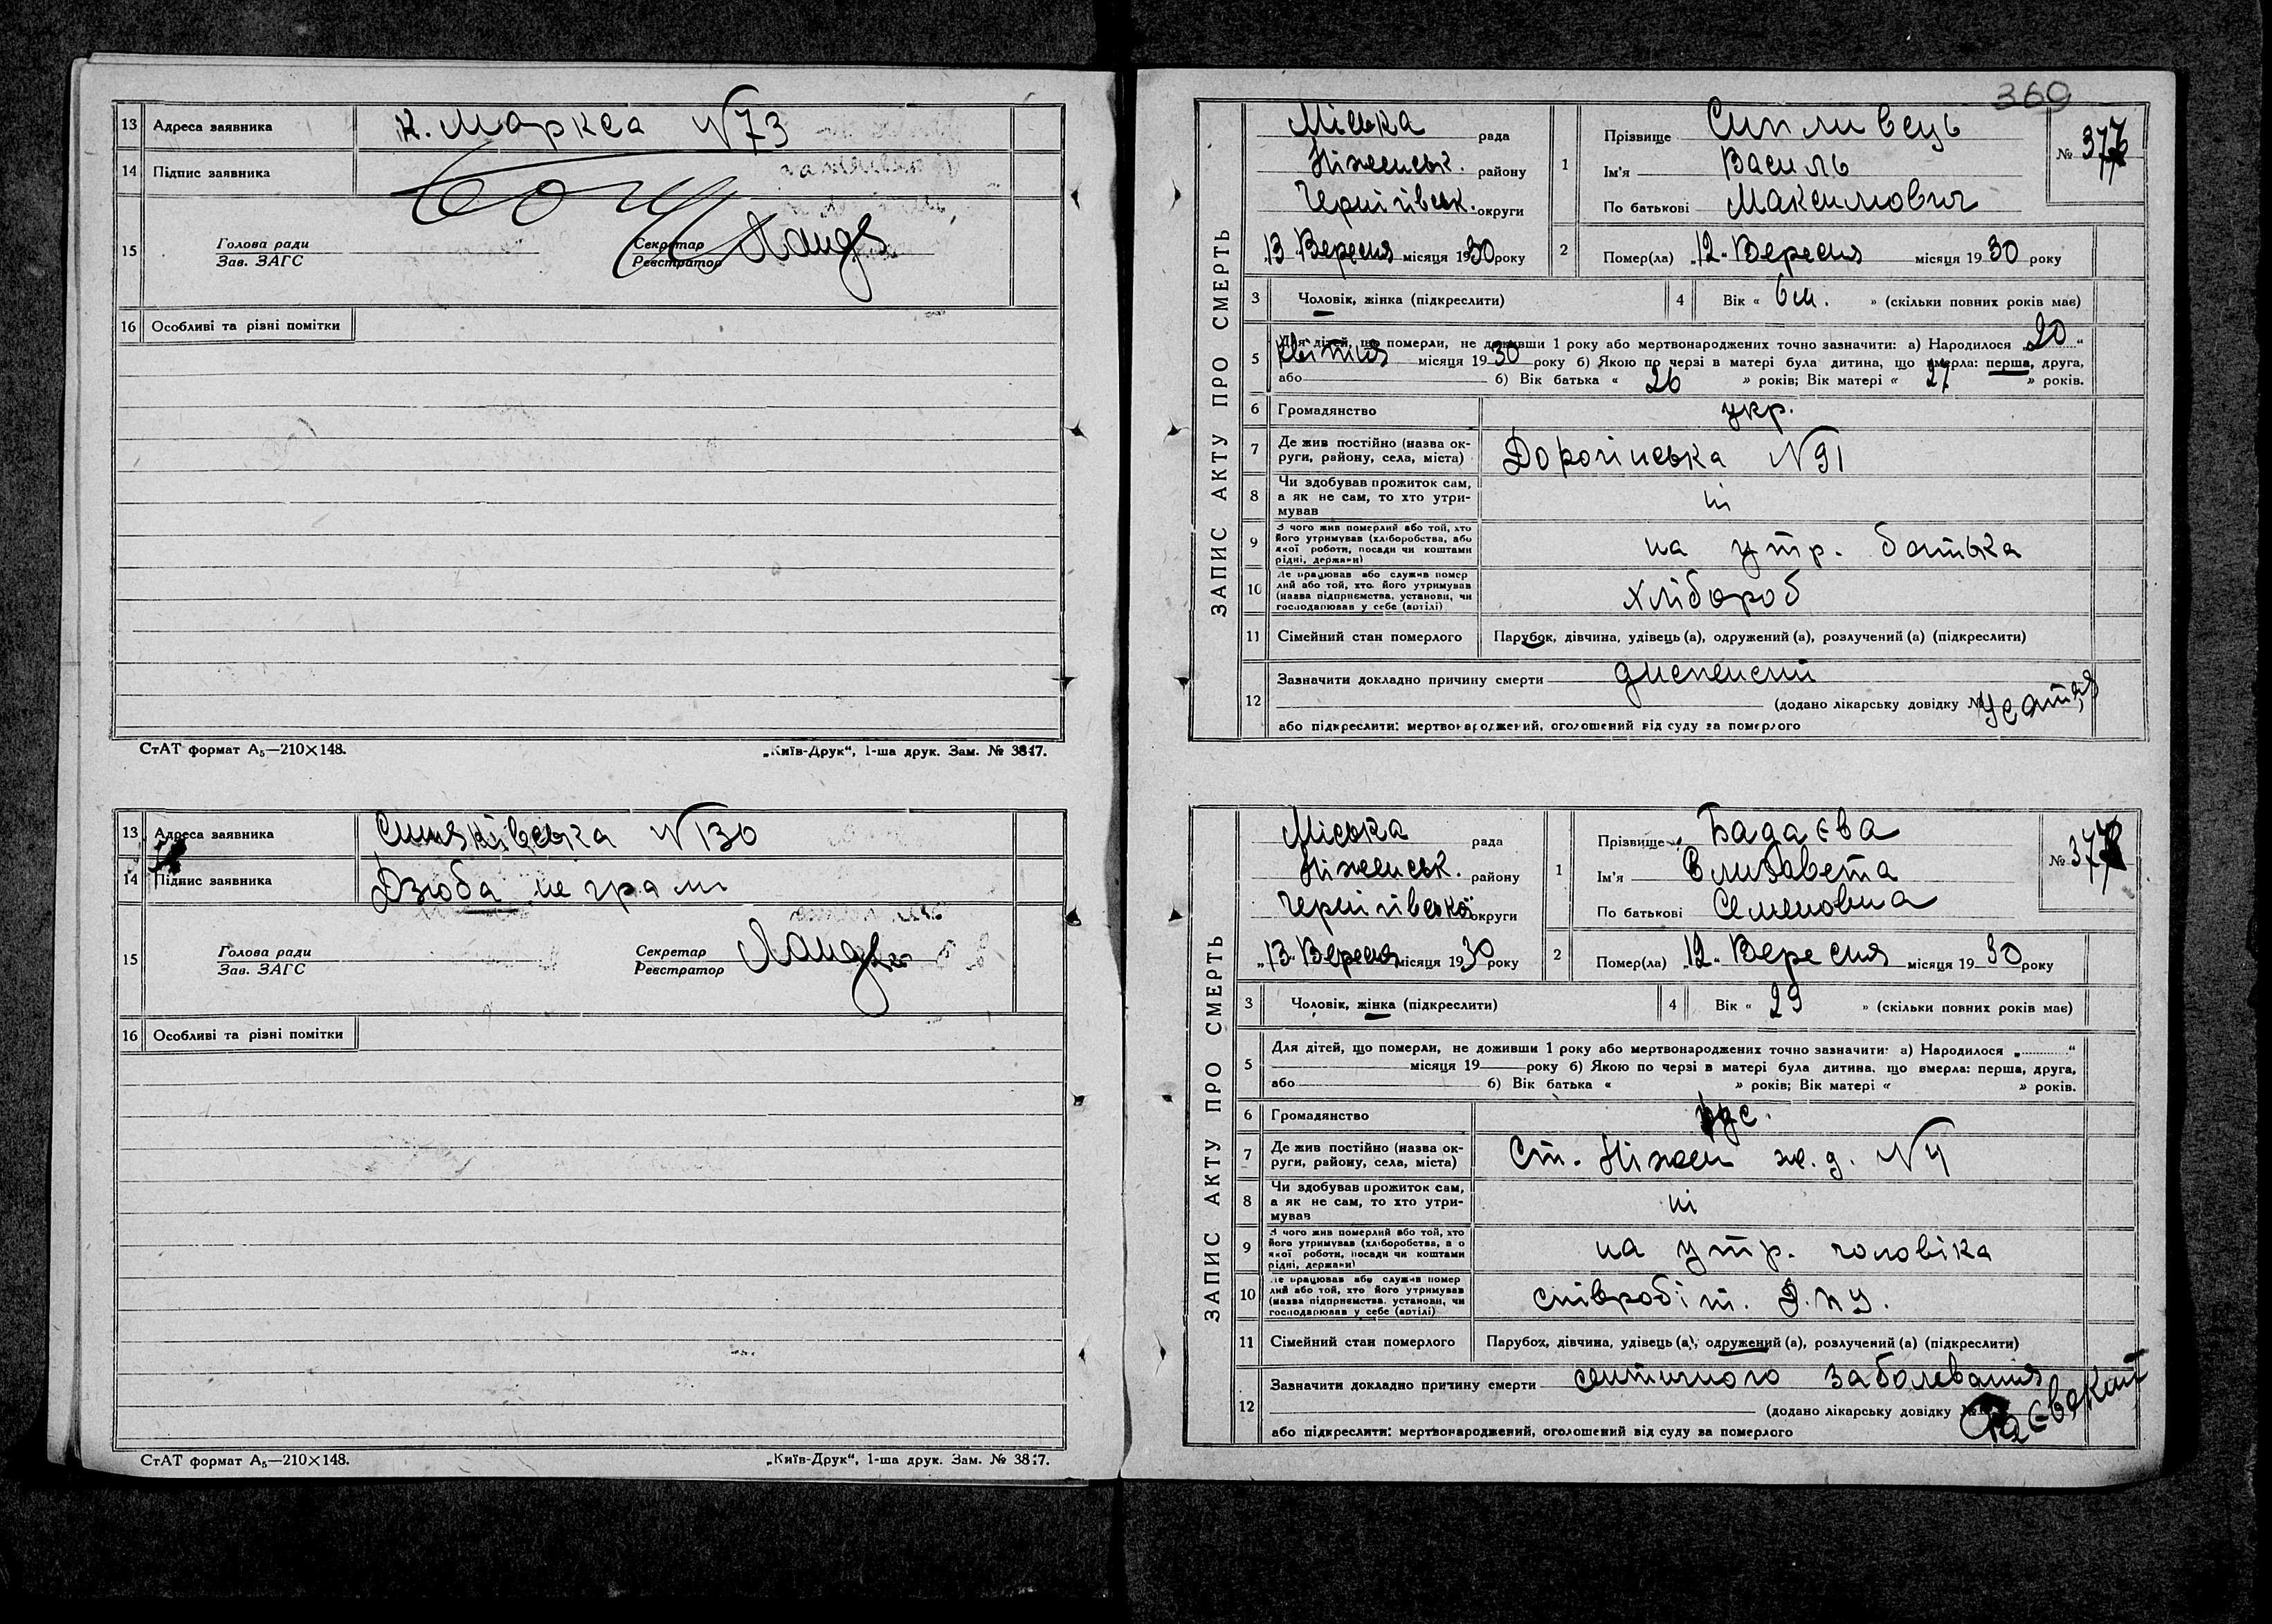 13 Адреса заявника К. Маркса N 73
14 Підпис заявника
15 Голова ради
Зав. ЗАГС
Секретар
Реєстратор
16 Особливі та різні помітки
СтАТ формат А₅—210×148.
„Київ-Друк“, 1-ша друк. Зам. № 3847.
13 Адреса заявника N 130
14 Підпис заявника Дзюба неграм
15 Голова ради
Зав. ЗАГС
Секретар
Реєстратор
16 Особливі та різні помітки
СтАТ формат А₅—210×148.
„Київ-Друк“, 1-ша друк. Зам. № 3847.
360
ЗАПИС АКТУ ПРО СМЕРТЬ
Міська рада
Ніженськ. району
Чернігівськ. округи
„13“ Вересня місяця 1930 року
1 Прізвище Сипливець
Ім'я Василь
По батькові Максимович
№ 377
2 Помер(ла) „12“ Вересня місяця 1930 року
3 Чоловік, жінка (підкреслити)
4 Вік « 6 м. » (скільки повних років має)
5 Для дітей, що померли, не доживши 1 року або мертвонароджених точно зазначити: а) Народилося „20“
Квітня місяця 1930 року б) Якою по черзі в матері була дитина, що вмерла: перша, друга,
або б) Вік батька « 26 » років; Вік матері « 27 » років.
6 Громадянство укр.
7 Де жив постійно (назва ок-
руги, району, села, міста) Дорогінська N 91
8 Чи здобував прожиток сам,
а як не сам, то хто утри-
мував ні
9 З чого жив померлий або той, хто
його утримував (хліборобства, або
якої роботи, посади чи коштами
рідні, держави) на утр. батька
10 Де працював або служив помер
лий або той, хто його утримував
(назва підприємства, установи, чи
господарював у себе (артілі) хлібороб
11 Сімейний стан померлого Парубок, дівчина, удівець (а), одружений (а), розлучений (а) (підкреслити)
12 Зазначити докладно причину смерти диспепсии
(додано лікарську довідку №
або підкреслити: мертвонароджений, оголошений від суду за померлого
ЗАПИС АКТУ ПРО СМЕРТЬ
Міська рада
Ніженськ. району
Чернігівської округи
„13“ Вересня місяця 1930 року
1 Прізвище Бадаєва
Ім'я Елизавета
По батькові Семеновна
№
2 Помер(ла) „12“ Вересня місяця 1930 року
3 Чоловік, жінка (підкреслити)
4 Вік « 29 » (скільки повних років має)
5 Для дітей, що померли, не доживши 1 року або мертвонароджених точно зазначити: а) Народилося „ “
місяця 19 року б) Якою по черзі в матері була дитина, що вмерла: перша, друга,
або б) Вік батька « » років; Вік матері « » років.
6 Громадянство рус.
7 Де жив постійно (назва ок-
руги, району, села, міста) Ст. Ніжен ж. д. N 4
8 Чи здобував прожиток сам,
а як не сам, то хто утри-
мував ні
9 З чого жив померлий або той, хто
його утримував (хліборобства, або
якої роботи, посади чи коштами
рідні, держави) на утр. чоловіка
10 Де працював або служив помер
лий або той, хто його утримував
(назва підприємства, установи, чи
господарював у себе (артілі) співробіт. Д.П.У.
11 Сімейний стан померлого Парубок, дівчина, удівець (а), одружений (а), розлучений (а) (підкреслити)
12 Зазначити докладно причину смерти септичного заболевания
(додано лікарську довідку №
або підкреслити: мертвонароджений, оголошений від суду за померлого